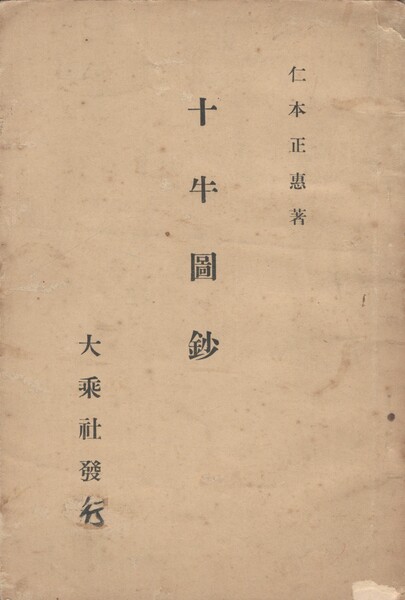 仁本正惠著
十牛圖鈔
大乘社發行